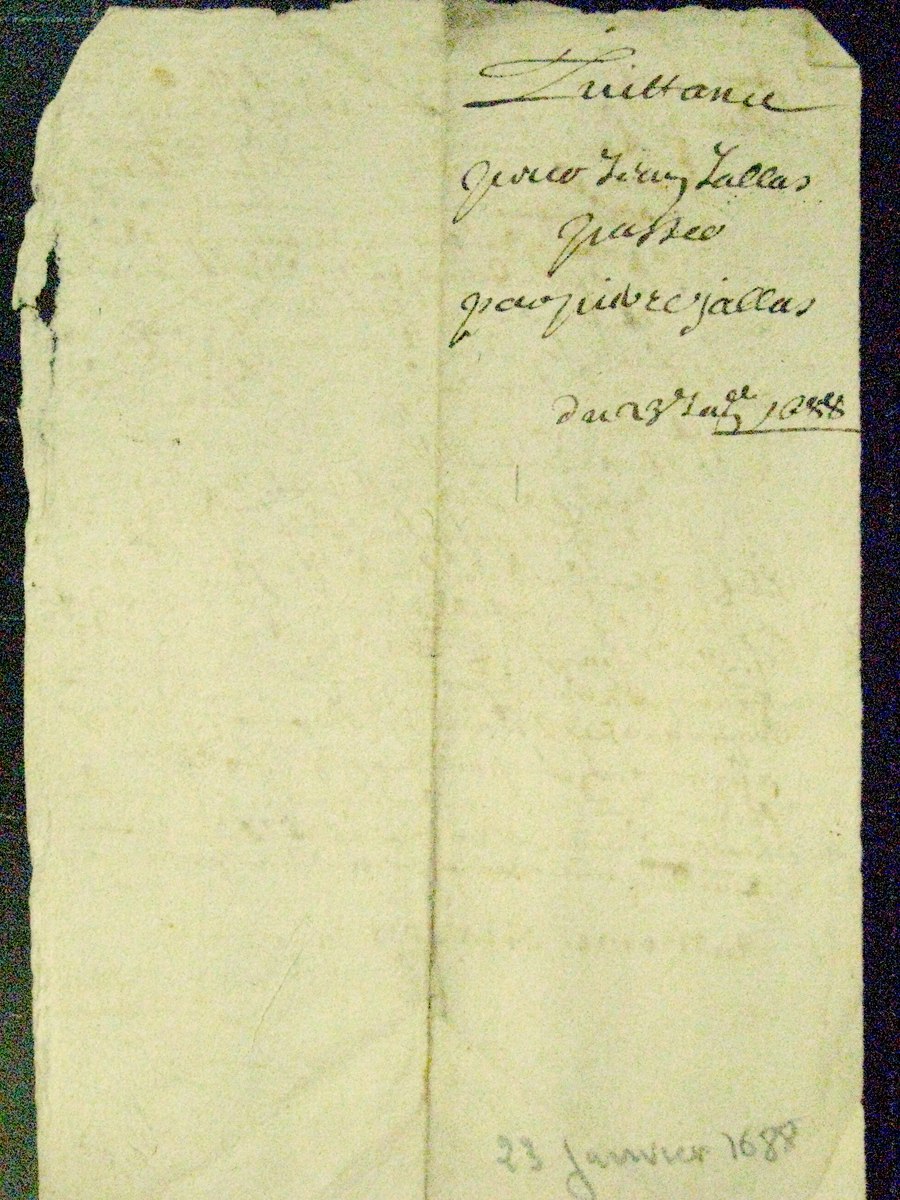 Quittance
pour Jean Jallas
passée
par pierre jallas
du 23e Janer 1688
23 Janvier 1688